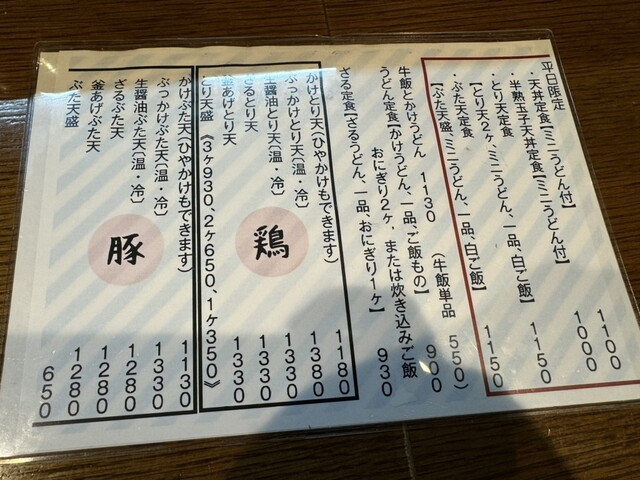 平日限定
・天丼定食【ミニうどん付】 1100
・半熟玉子天丼定食【ミニうどん付】 1000
・とり天定食
【とり天2ヶ、ミニうどん、一品、白ご飯】 1150
・ぶた天定食
【ぶた天盛、ミニうどん、一品、白ご飯】 1150
牛飯とかけうどん 1130 (牛飯単品 550)
うどん定食【かけうどん、一品、ご飯もの】 900
おにぎり2ヶ, または炊き込みご飯
ざる定食【ざるうどん、一品、おにぎり1ヶ】 930
鶏
かけとり天(ひやかけもできます) 1180
ぶっかけとり天〔温・冷〕 1380
生醤油とり天〔温・冷〕 1330
ざるとり天 1330
釜あげとり天 1330
とり天盛《3ヶ930、2ヶ650、1ヶ350》
豚
かけぶた天(ひやかけもできます) 1130
ぶっかけぶた天〔温・冷〕 1330
生醤油ぶた天〔温・冷〕 1280
ざるぶた天 1280
釜あげぶた天 1280
ぶた天盛 650